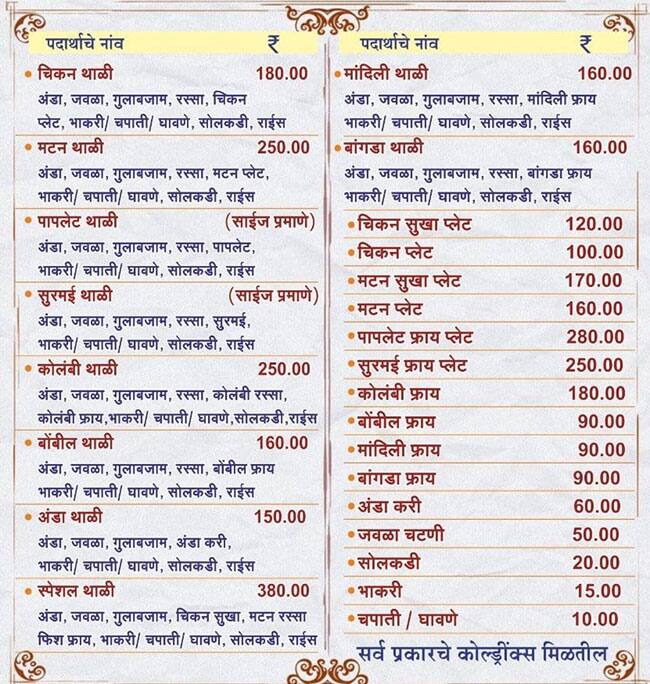 पदार्थाचे नांव ₹
• चिकन थाळी 180.00
अंडा, जवळा, गुलाबजाम, रस्सा, चिकन
प्लेट, भाकरी/ चपाती/ घावणे, सोलकडी, राईस
• मटन थाळी 250.00
अंडा, जवळा, गुलाबजाम, रस्सा, मटन प्लेट,
भाकरी/ चपाती/ घावणे, सोलकडी, राईस
• पापलेट थाळी (साईज प्रमाणे)
अंडा, जवळा, गुलाबजाम, रस्सा, पापलेट,
भाकरी/ चपाती/ घावणे, सोलकडी, राईस
• सुरमई थाळी (साईज प्रमाणे)
अंडा, जवळा, गुलाबजाम, रस्सा, सुरमई,
भाकरी/ चपाती/ घावणे, सोलकडी, राईस
• कोलंबी थाळी 250.00
अंडा, जवळा, गुलाबजाम, रस्सा, कोलंबी रस्सा,
कोलंबी फ्राय,भाकरी/ चपाती/ घावणे,सोलकडी,राईस
• बोंबील थाळी 160.00
अंडा, जवळा, गुलाबजाम, रस्सा, बोंबील फ्राय
भाकरी/ चपाती/ घावणे, सोलकडी, राईस
• अंडा थाळी 150.00
अंडा, जवळा, गुलाबजाम, अंडा करी,
भाकरी/ चपाती/ घावणे, सोलकडी, राईस
• स्पेशल थाळी 380.00
अंडा, जवळा, गुलाबजाम, चिकन सुखा, मटन रस्सा
फिश फ्राय, भाकरी/ चपाती/ घावणे, सोलकडी, राईस
पदार्थाचे नांव ₹
• मांदिली थाळी 160.00
अंडा, जवळा, गुलाबजाम, रस्सा, मांदिली फ्राय
भाकरी/ चपाती/ घावणे, सोलकडी, राईस
• बांगडा थाळी 160.00
अंडा, जवळा, गुलाबजाम, रस्सा, बांगडा फ्राय
भाकरी/ चपाती/ घावणे, सोलकडी, राईस
• चिकन सुखा प्लेट 120.00
• चिकन प्लेट 100.00
• मटन सुखा प्लेट 170.00
• मटन प्लेट 160.00
• पापलेट फ्राय प्लेट 280.00
• सुरमई फ्राय प्लेट 250.00
• कोलंबी फ्राय 180.00
• बोंबील फ्राय 90.00
• मांदिली फ्राय 90.00
• बांगडा फ्राय 90.00
• अंडा करी 60.00
• जवळा चटणी 50.00
• सोलकडी 20.00
• भाकरी 15.00
• चपाती / घावणे 10.00
सर्व प्रकारचे कोल्ड्रींक्स मिळतील